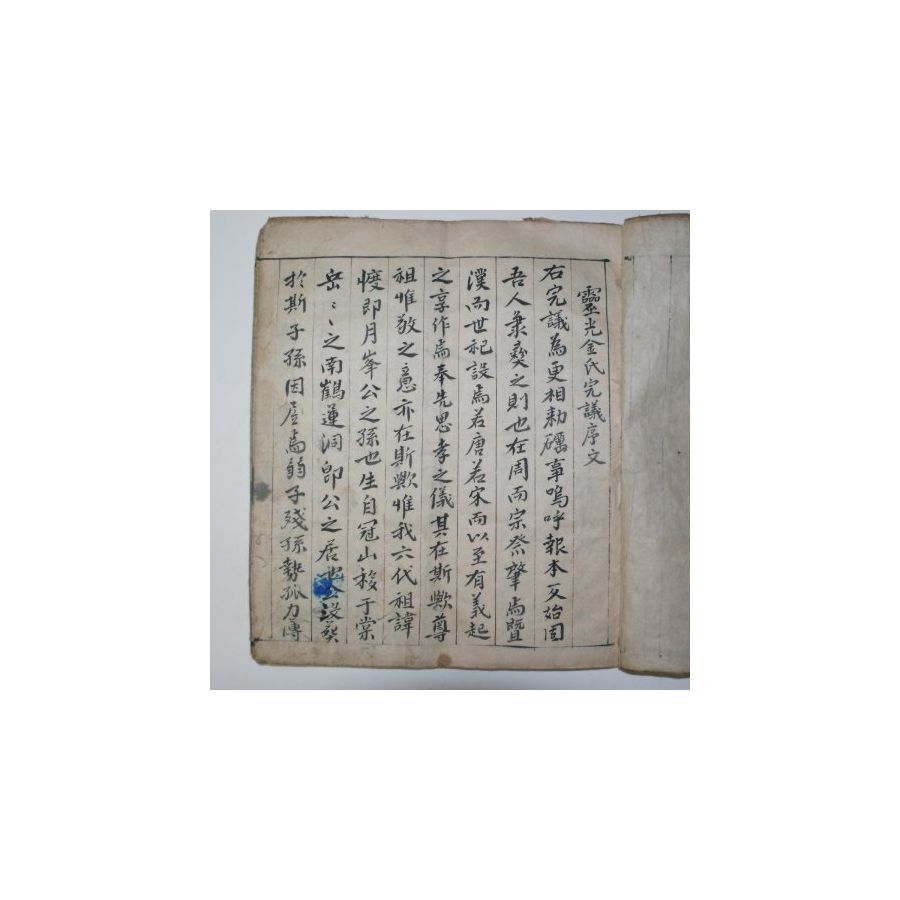 靈光金氏完議序文
右完議為更相勅礪事嗚呼報本反始固
吾人秉彜之則也在周而宗祭肇焉曁
漢而世祀設焉若唐若宋而以至有義起
之享作焉奉先思孝之儀其在斯歟尊
祖惟敬之意亦在斯歟惟我六代祖諱
㦿即月峯公之孫也生自冠山移于棠
岳〻之南鶴蓮洞卽公之居也
於斯子孫因居焉弱子殘孫勢孤力薄